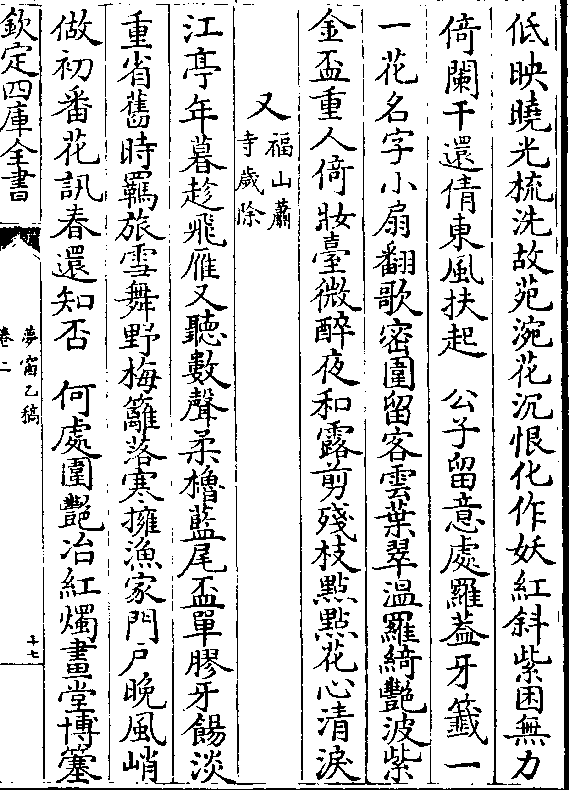 低映曉光梳洗故苑浣花沉恨化作妖紅斜紫困無力
倚闌干還倩東風扶起　公子留意處羅蓋牙籤一
一花名字小扇翻歌密圍留客雲葉翠溫羅綺艶波紫
金盃重人倚妝臺微醉夜和露剪殘枝點點花心清淚
又福山蕭
寺歲除
江亭年暮趁飛雁又聽數聲柔櫓藍尾盃單膠牙餳淡
重省舊時羈旅雪舞野梅籬落寒擁漁家門戶晚風峭
做初番花訊春還知否　何處圍艶冶紅燭畫堂博簺
欽定四庫全書
夢窗乙稿
卷二
十七